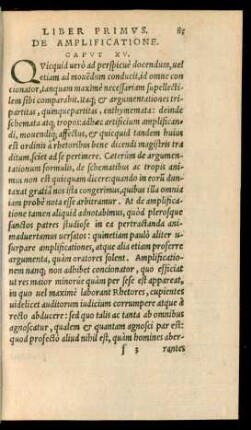 LIBER PRIMVS. 85
DE AMPLIFICATIONE.
CAPVT XV.
QVicquid uerò ad perspicuè docendum, uel
etiam ad mouēdum conducit, id omne con
cionator, tanquam maximè necessariam supellecti-
lem sibi comparabit, utaq; & argumentationes tri-
partitas, quinquepartitas, enthymemata: deinde
schemata atq; tropos: adhæc artificium amplifican-
di, mouendiq; affectus, & quicquid tandem huius
est ordinis à rhetoribus bene dicendi magistris tra
ditum, sciet ad se pertinere. Cæterùm de argumen-
tationum formulis, de schematibus ac tropis ani-
mus non est quicquam dicere: quando in eorū dun-
taxat gratiā nos ista congerimus, quibus illa omnia
iam probè nota esse arbitramur. At de amplifica-
tione tamen aliquid adnotabimus, quòd plerosque
sanctos patres studiosè in ea pertractanda ani-
maduertamus uersatos: quinetiam paulò aliter u-
surpare amplificationes, atque alia etiam proferre
argumenta, quàm oratores solent. Amplification-
nem nanq; non adhibet concionator, quo efficiat
ut res maior minorúe quàm per sese est appareat,
in quo uel maximè laborant Rhetores, cupientes
uidelicet auditorum iudicium corrumpere atque à
recto abducere: sed quo talis ac tanta ab omnibus
agnoscatur, qualem & quantam agnosci par est:
quod profectò aliud nihil est, quàm homines aber-
f 3 rantes